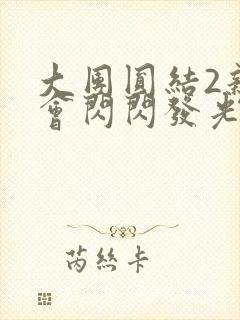 大團圓結2新
會閃閃發光
芮絲卡